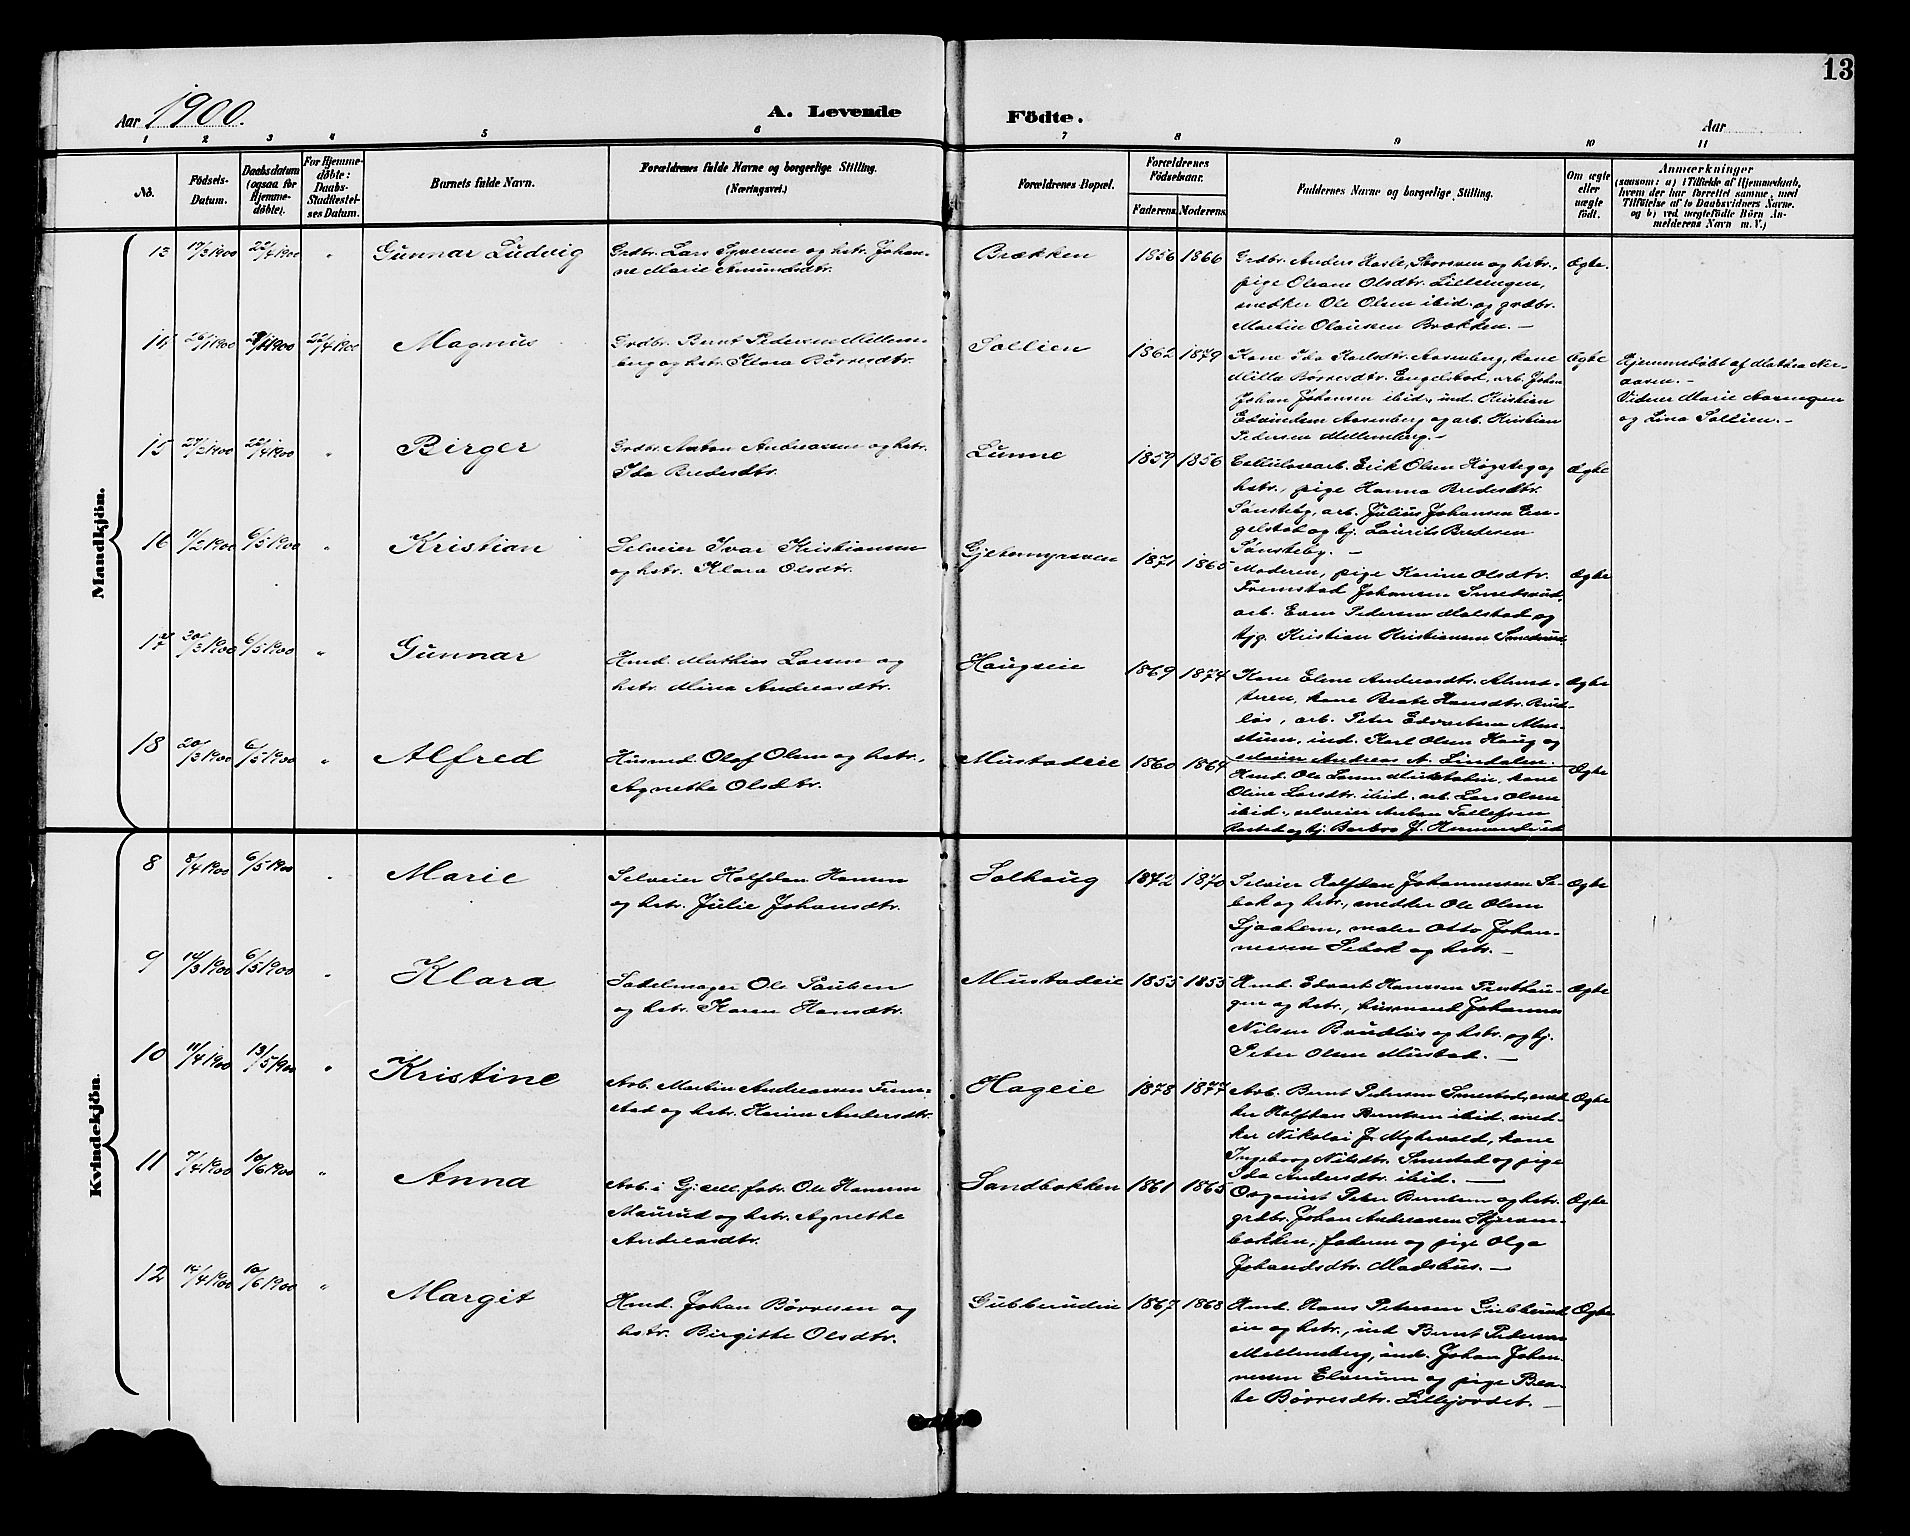 13
Aar 1900.
A. Levende
Födte.
Aar
1 2 3 4 5 6 7 8 9 10 11
No.
Födsels-
Datum.
Daabsdatum
(ogsaa for
Hjemme-
døbte).
For Hjemme-
døbte:
Daabs-
Stadfæstel-
ses Datum.
Barnets fulde Navn.
Forældrenes fulde Navne og borgerlige Stilling.
(Næringsvei.)
Forældrenes Bopæl.
Forældrenes
Födselsaar.
Faderens. Moderens.
Faddernes Navne og borgerlige Stilling.
Om ægte
eller
uægte
født.
Anmærkninger
(saasom: a) i Tilfælde af Hjemmedaab,
hvem der har forrettet samme, med
Tilføielse af to Daabsvidners Navne.
og b) ved uægtefödte Börn An-
melderens Navn m. V.)
Mandkjön.
13 17/3 1900 22/4 1900 " Gunnar Ludvig
Grdbr. Lars Syversen og hstr. Johan-
ne Marie Amundsdtr.
Brækken 1856 1866
Grdbr. Anders Hasle, Storsven og hstr.,
pige Oleane Olsdtr. Lilleengen,
snedker Ole Olsen ibid. og grdbr.
Martin Olaussen Brækken. —
Ægte.
14 26/1 1900 1900 22/4 1900 Magnus
Grdbr. Bernt Pedersen Mellem-
berg og hstr. Klara Børresdtr.
Sollien 1862 1879
Kone Ida Karlsdtr. Aasenberg, kone
Milla Børresdtr. Engelstad, arb. Johan
Johan Johansen ibid., ind. Kristian
Edvindsen Aasenberg og arb. Kristian
Pedersen Mellemberg. —
Ægte
Hjemmedøbt af Mathea Ner-
aasen. —
Vidner Marie Aasengen
og Lina Sollien. —
15 27/2 1900 22/4 1900 " Birger
Grdbr. Anton Andreassen og hstr.
Ida Bredesdtr.
Lunne 1859 1856
Cellulosearb. Erik Olsen Høgsteg og
hstr., pige Hanna Bredesdtr.
Sønsteby, arb. Julius Johansen En-
gelstad og tj. Laurits Bredesen
Sønsteby. —
Ægte
16 11/2 1900 6/5 1900 " Kristian
Selveier Ivar Kristiansen
og hstr. Klara Olsdtr.
Gjetemyrsven 1871 1865
Moderen, pige Karine Olsdtr.
Fremstad Johansen Smedsrud,
arb. Even Pedersen Molstad og
tjg. Kristian Kristiansen Smedsrud.
Ægte
17 20/3 1900 6/5 1900 " Gunnar
Hmd. Mathias Larsen og
hstr. Mina Andreasdtr.
Haugseie 1869 1874
Kone Eline Andreasdtr. Almes-
teren, kone Beate Hansdtr. Brud-
løs, arb. Peter Edvardsen Alme-
stuen, ind. Karl Olsen Haug og
selveier Andreas A. Lindalen.
Ægte
18 20/3 1900 6/5 1900 " Alfred
Husmd. Olaf Olsen og hstr.,
Agnethe Olsdtr.
Mustadeie 1860 1864
Hmd. Ole Larsen Mustadeie, kone
Oline Larsdtr. ibid. arb. Lars Olsen
ibid., selveier Anton Tollefsen
Rostad og tj. Barbro J. Hermanslund
Ægte
Kvindekjön.
8 8/4 1900 6/5 1900 " Marie
Selveier Halfdan Hansen
og hstr. Julie Johansdtr.
Solhaug 1872 1870
Selveier Halfdan Johannessen Se-
bok og hstr., snedker Ole Olsen
Sjaahem, maler Otto Johan-
nessen Sebok og hstr. —
Ægte
9 14/3 1900 6/5 1900 " Klara
Sadelmager Ole Paulsen
og hstr. Karen Hansdtr.
Mustadeie 1855 1855
Hmd. Edvart Hanssen Presthau-
gen og hstr., husmand Johannes
Nilsen Brudløs og hstr. og tj.
Peter Olsen Mustad. —
Ægte
10 11/4 1900 13/5 1900 " Kristine
Arb. Martin Andreassen Frem-
stad og hstr. Karine Andersdtr.
Hageie 1878 1877
Arb. Bernt Pedersen Smestad, sned-
ker Halfdan Berntsen ibid. sned-
ker Nikolai J. Myhrvold, kone
Ingeborg Nilsdtr. Smestad og pige
Ida Andersdtr. ibid. —
Ægte
11 7/4 1900 10/6 1900 " Anna
Arb. i Gj. cell. fabr. Ole Hansen
Maurud og hstr. Agnethe
Andreasdtr.
Sandbakken 1861 1865
Organist Peter Berntsen og hstr.
grdbr. Johan Andreassen Stjerne-
bakken, faderen og pige Olga
Johandsdtr. Madshus. —
Ægte
12 14/4 1900 10/6 1900 " Margit
Hmd. Johan Børresen og
hstr. Birgitte Olsdtr.
Gubberudeie 1867 1868
Hmd. Hans Petersen Gubberud-
eie og hstr., ind Bernt Pedersen
Mellemberg, indr. Johan Johan-
nessen Elverum og pige Bea-
te Børresdtr. Lillejordet. —
Ægte